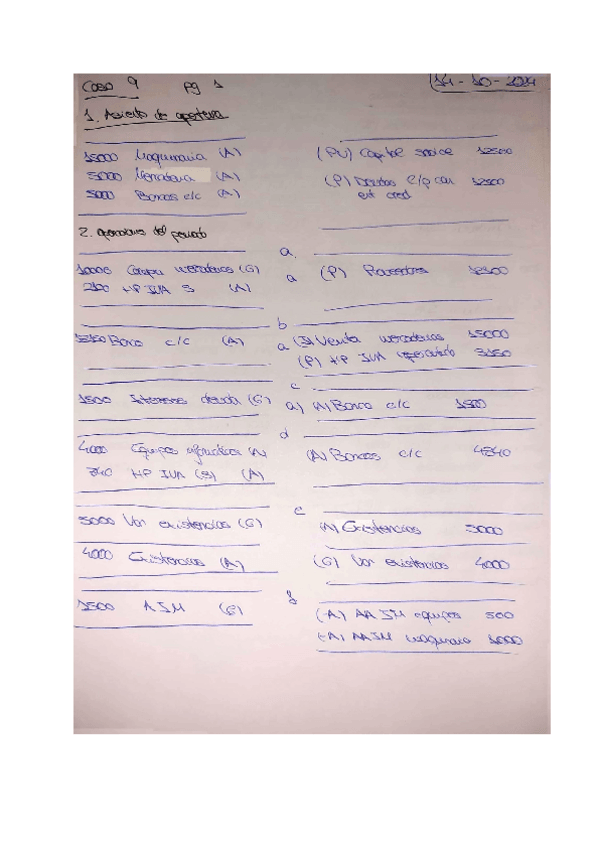 Caso 9 pg 1 14-10-2024
1. Asiento de apertura
15000 Maquinaria (A) (PN) Capital social 12500
5000 Mercaderia (A) (P) Deudas c/p con 12500
5000 Bancos c/c (A) ent cred
2. operaciones del periodo
a.
10000 Compra mercaderias (G) a (P) Proveedores
HP IVA S (A)
b
Banco c/c (A) a (I) Venta mercaderias 15000
(P) HP IVA repercutido 3150
c
1500 Intereses deuda (G) a) (A) Banco c/c 1500
d
4000 Equipos informaticos (A) (A) Bancos c/c 4840
840 HP IVA (S) (A)
e
5000 Var existencias (G) (A) Existencias 5000
4000 Existencias (A) (G) Var existencias 4000
f
1500 AIM (G) (-A) AAIM equipos 500
(-A) AAIM maquinaria 1000